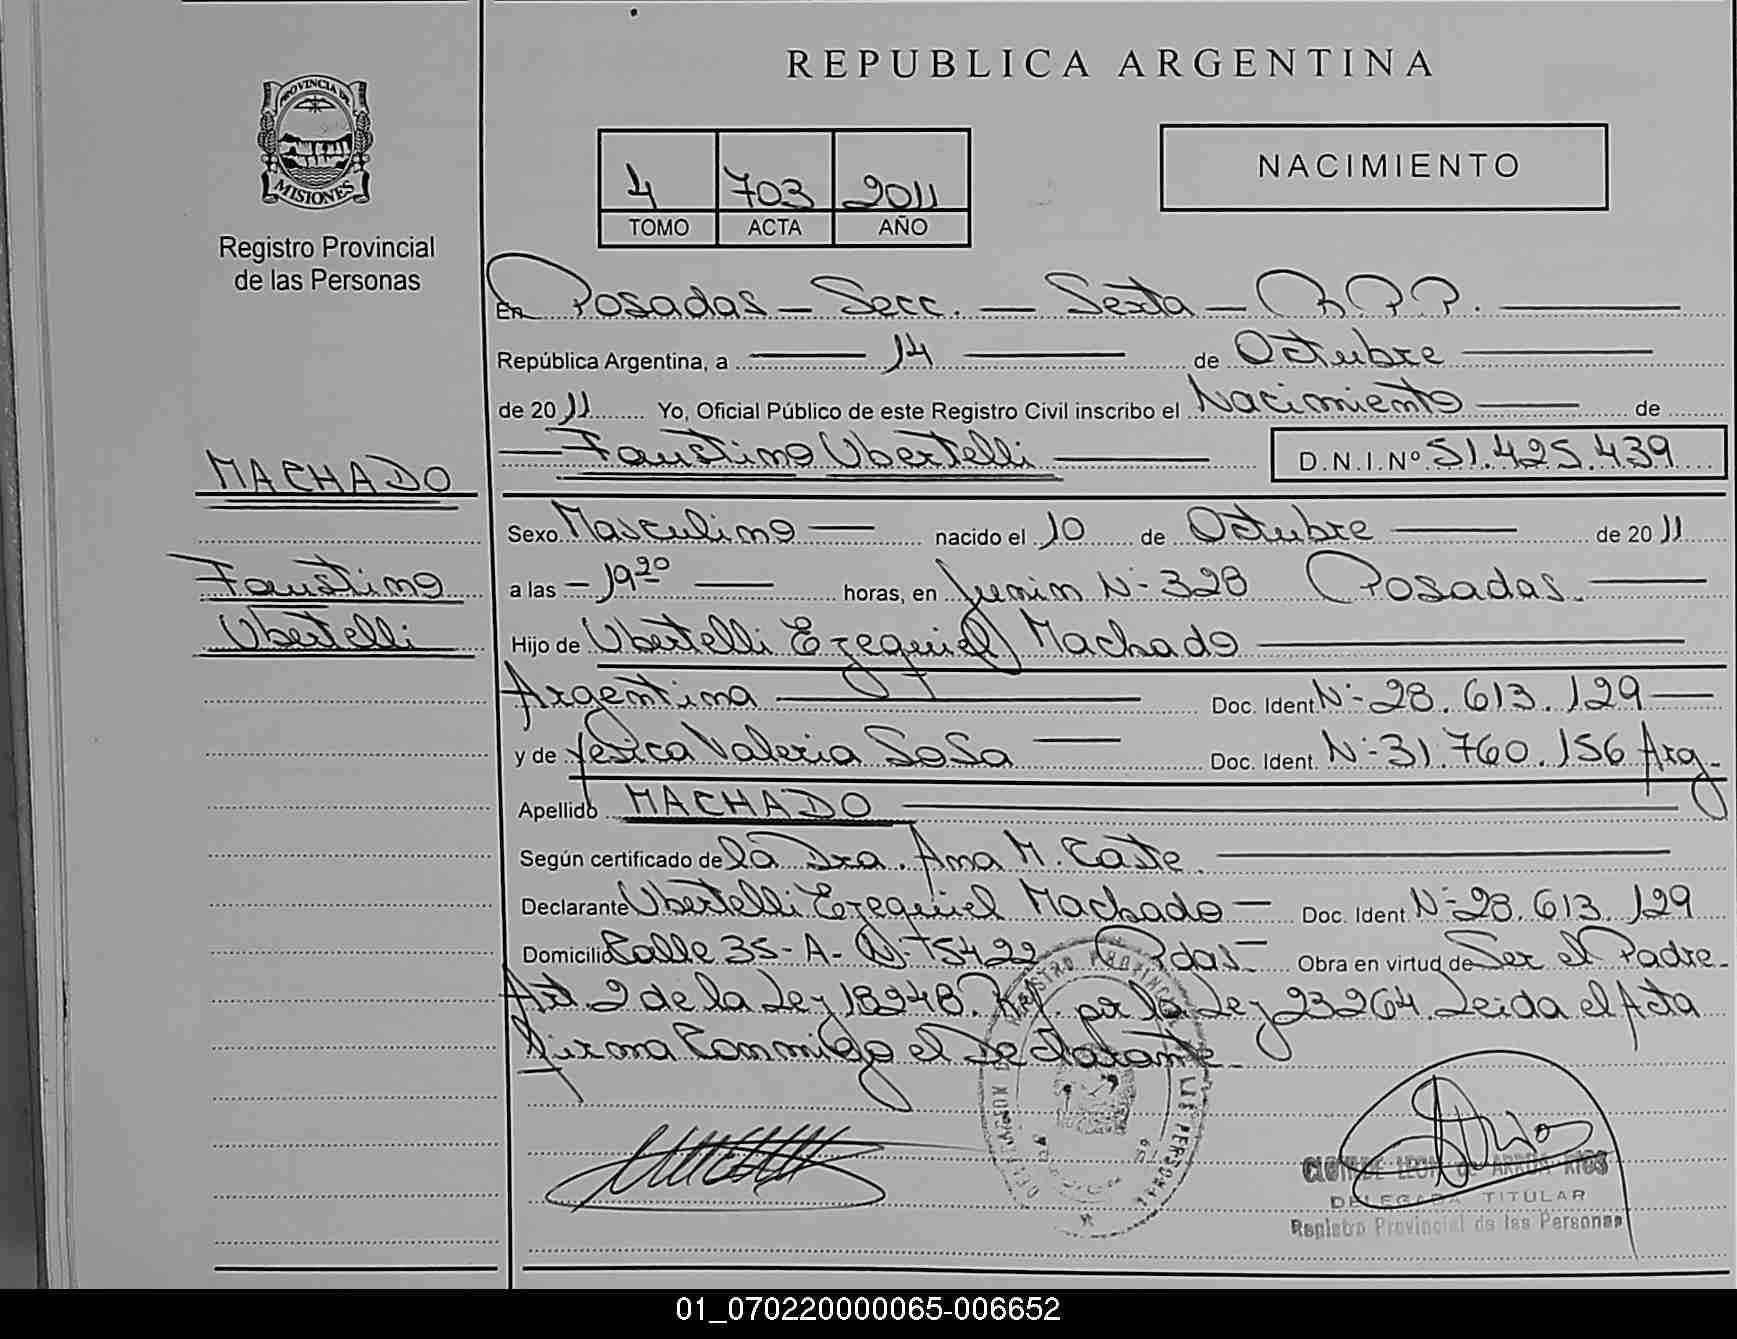 REPUBLICA ARGENTINA
PROVINCIA DE
MISIONES
Registro Provincial
de las Personas
4 703 2011
TOMO ACTA AÑO
NACIMIENTO
En Posadas - Secc. - Sexta - R.P.P.
República Argentina, a 14 de Octubre
de 2011 Yo, Oficial Público de este Registro Civil inscribo el Nacimiento de
Faustino Ubertelli D.N.I.Nº 51.425.439
MACHADO
Faustino
Ubertelli
Sexo Masculino nacido el 10 de Octubre de 2011
a las - 19 20 horas, en Junin Nº 328 Posadas.
Hijo de Ubertelli Ezequiel Machado
Argentina Doc. Ident Nº 28.613.129
y de Yesica Valeria Sosa Doc. Ident. Nº 31.760.156 Arg.
Apellido MACHADO
Según certificado de la Dra. Ana M.
Declarante Ubertelli Ezequiel Machado - Doc. Ident Nº 28.613.129
Domicilio Calle 35-A- Nº 5422 Pdas. Obra en virtud de Ser el Padre.
Art. 2 de la Ley 18248. Ref. por la Ley 23264. Leida el Acta
firma Conmigo el Declarante.
REGISTRO PROVINCIAL DE LAS PERSONAS
CLOTILDE LEON de ARRUA RIOS
DELEGADA TITULAR
Registro Provincial de las Personas
01_070220000065-006652